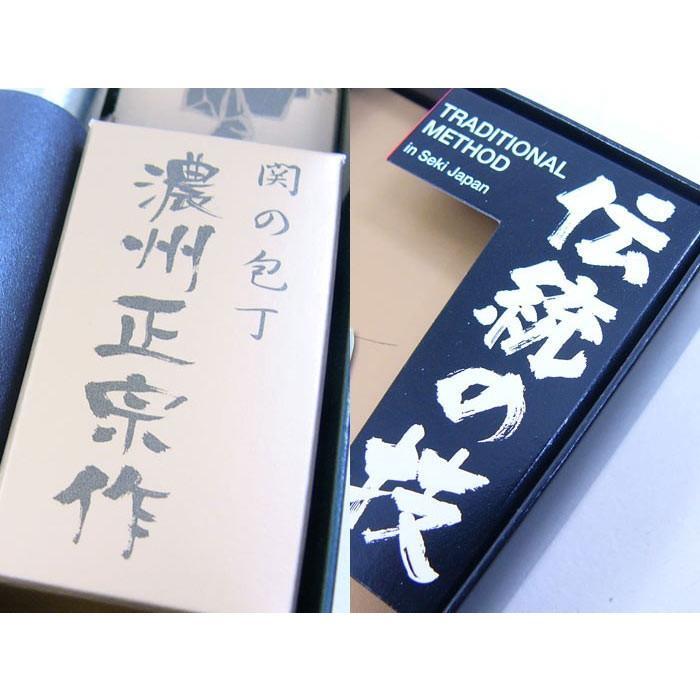 関の包丁
濃州正宗作
TRADITIONAL
METHOD
in Seki Japan
伝統の技